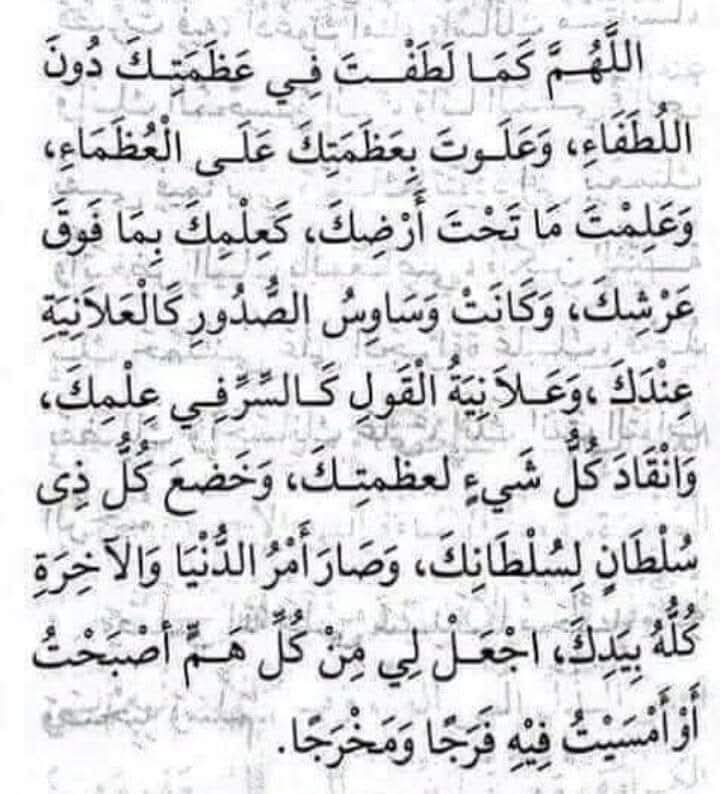 اللَّهُمَّ كَمَا لَطَفْتَ فِي عَظَمَتِكَ دُونَ
اللُطَفَاءِ، وَعَلَوتَ بِعَظَمَتِكَ عَلَى الْعُظَمَاءِ،
وَعَلِمْتَ مَا تَحْتَ أَرْضِكَ، كَعِلْمِكَ بِمَا فَوقَ
عَرْشِكَ، وَكَانَتْ وَسَاوِسُ الصُّدُورِ كَالْعَلاَنِيَةِ
عِنْدَكَ ،وَعَلاَنِيَةُ الْقَولِ كَالسِّرِّ فِي عِلْمِكَ،
وَانْقَادَ كُلُّ شَيءٍ لعظمتِكَ، وَخَضعَ كُلُّ ذِى
سُلْطَانٍ لِسُلْطَانِكَ، وَصَارَ أَمْرُ الدُّنْيَا وَالآخِرَةِ
كُلُّهُ بِيَدِكَ، اجْعَلْ لِي مِنْ كُلِّ هَمٍّ أصْبَحْتُ
أَوْ أَمْسَيْتُ فِيْهِ فَرَجًا وَمَخْرَجًا.